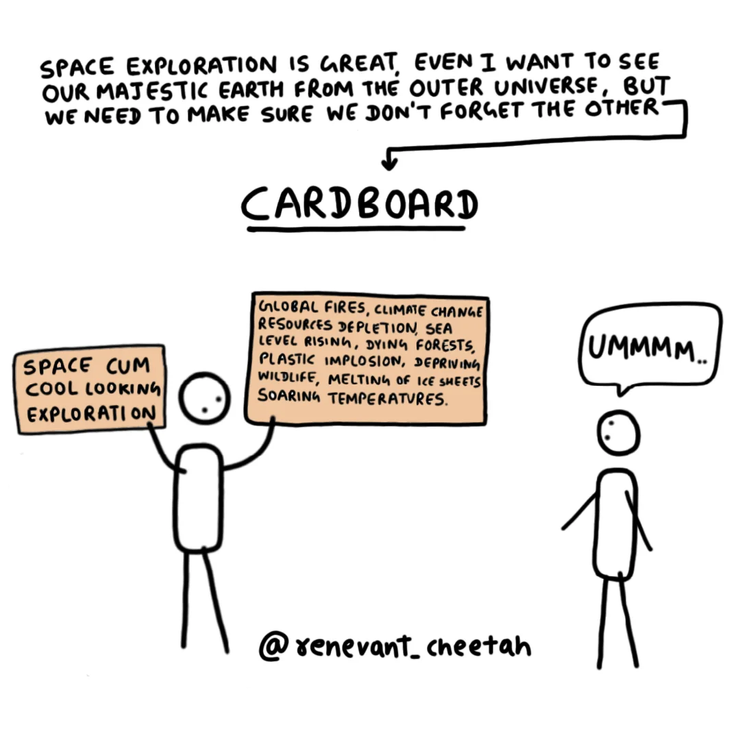 SPACE EXPLORATION IS GREAT, EVEN I WANT TO SEE
OUR MAJESTIC EARTH FROM THE OUTER UNIVERSE, BUT
WE NEED TO MAKE SURE WE DON'T FORGET THE OTHER
CARDBOARD
SPACE CUM
COOL LOOKING
EXPLORATION
GLOBAL FIRES, CLIMATE CHANGE
RESOURCES DEPLETION, SEA
LEVEL RISING, DYING FORESTS,
PLASTIC IMPLOSION, DEPRIVING
WILDLIFE, MELTING OF ICE SHEETS
SOARING TEMPERATURES.
UMMMM..
@renevant_cheetah